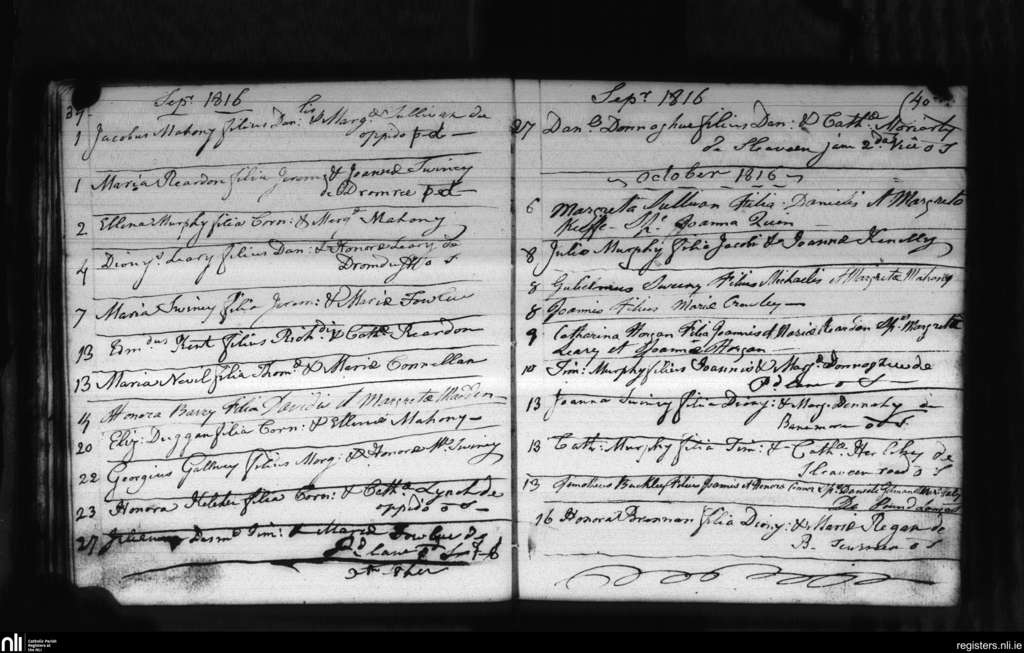 39.
Sepr 1816
1 Jacobus Mahony filius Danlis & Margt Sullivan de
oppido pd
1 Maria Reardon filia Jerom: & Joanne Swiney
de Dromree pd
2 Ellena Murphy filia Corn: & Margt Mahony
4 Dionys Leary filius Dan: & Honore Leary de
o S
7 Maria Swiney filia Jerom: & Marie Fowlue
13 Edmdus Kent filius Richdi & Cathe Reardon
13 Maria Nevil filia Thom & Marie Connellan
Honora Barry Filia Davidis et Margrete Madden
20 Eliz: Duggan filia Corn: & Ellene Mahony
22 Georgius Gallwey filius Morg: & Honore Mc Swiney
23 Honora Keleher filia Corn: & Cathe Lynch de
oppido o S
27 Tim: & Marie de
Pd
(40
Sepr 1816
27 Danl Donnoghue filius Dan: & Cathe Moriarty
de Slaveen jam 2da vice o S
October 1816
6 Margreta Sullivan Filia Danielis et Margreta
Keeffe Sps Joanna Quin
8 Julia Murphy filia Jacobi & Joanne Kenelly
8 Gulielmus Sweeny Filius Michaelis et Margreta Mahony
8 Joannes Filius Marie Crowley
9 Catharina Horgan Filia Joannis et Marie Reardon Sps Margreta
Leary et Joannes Horgan
10 Tim: Murphy filius Joannis & Margt Donnoghue de
o S
13 Joanna Swiney filia Diony: & Marg: Dennahy de
o S
13 Cath: Murphy filia Tim: & Cathe Herlihy de
Slaveen road o S
13 Timotheus Buckley Filius Joannis et Honora Connor Sps Daniele
De Pound Lane
16 Honora Brennan filia Diony: & Marie Regan de
o S
nli
Catholic Parish
Registers at
the NLI
registers.nli.ie